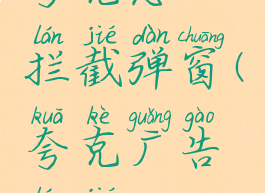 lán jié dàn chuāng
拦截弹窗(
kuā kè guǎng gào
夸克广告